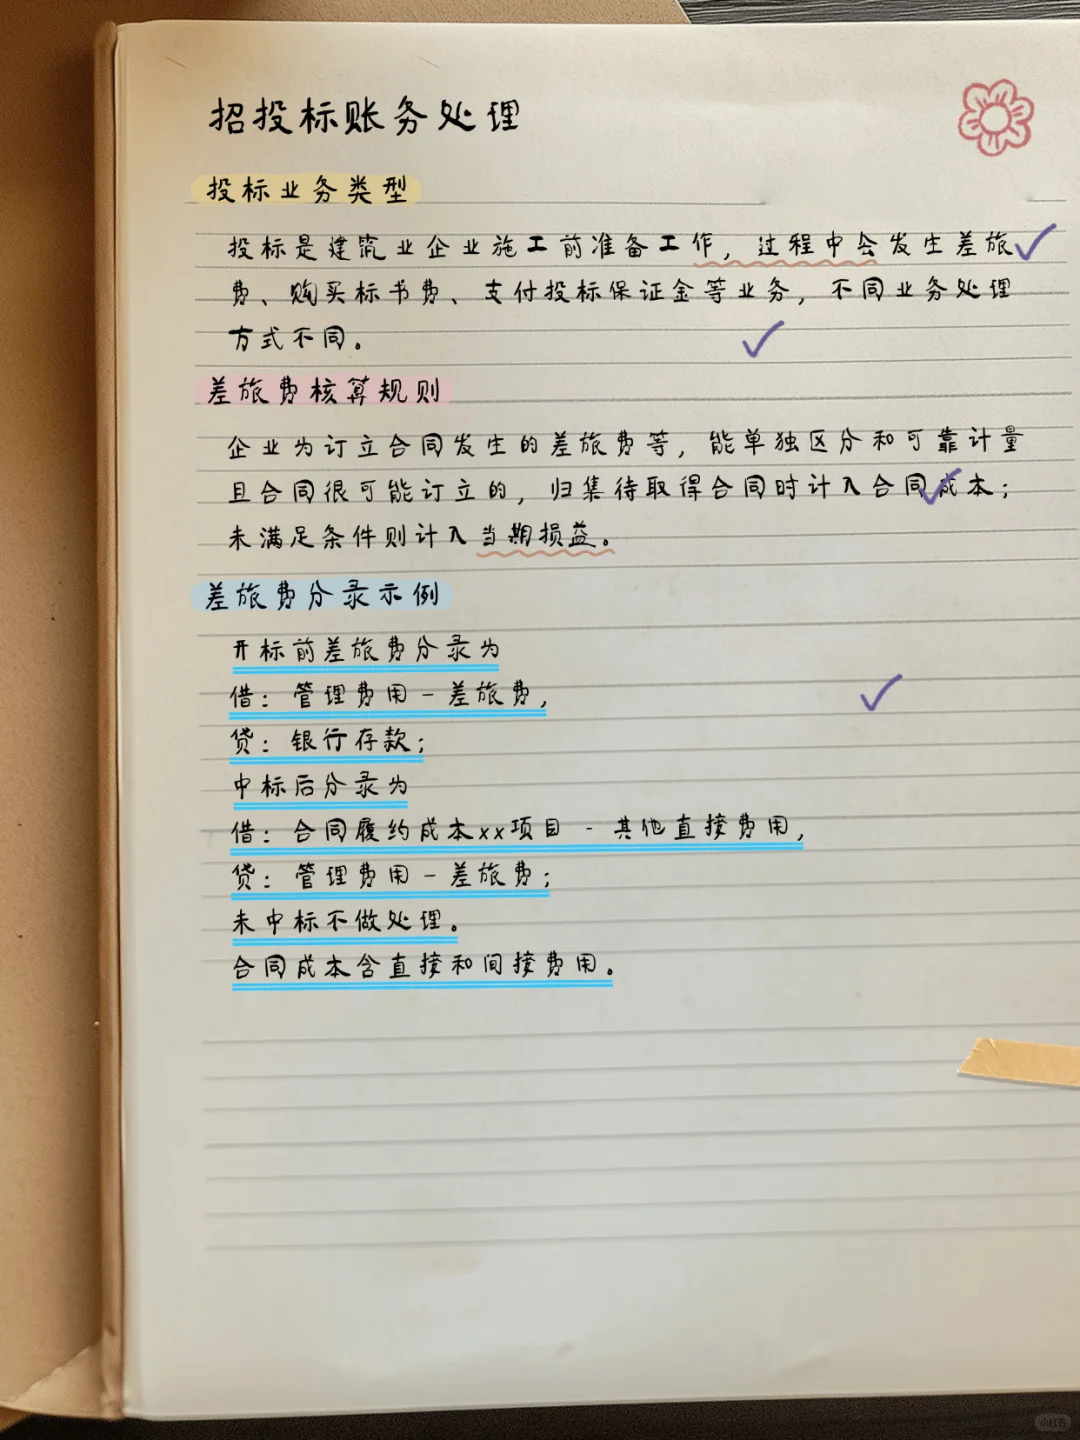 招投标账务处理
投标业务类型
投标是建筑业企业施工前准备工作，过程中会发生差旅
费、购买标书费、支付投标保证金等业务，不同业务处理
方式不同。
差旅费核算规则
企业为订立合同发生的差旅费等，能单独区分和可靠计量
且合同很可能订立的，归集待取得合同时计入合同成本；
未满足条件则计入当期损益。
差旅费分录示例
开标前差旅费分录为
借：管理费用-差旅费，
贷：银行存款；
中标后分录为
借：合同履约成本xx项目-其他直接费用，
贷：管理费用-差旅费；
未中标不做处理。
合同成本含直接和间接费用。
小红书